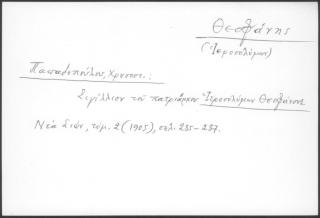 Θεοφάνης
(Ἱεροσολύμων)
Παπαδόπουλος, Χρυσοστ.:
Σιγίλλιον τοῦ πατριάρχου Ἱεροσολύμων Θεοφάνους
Νέα Σιών, τόμ. 2 (1905), σελ. 235-237.